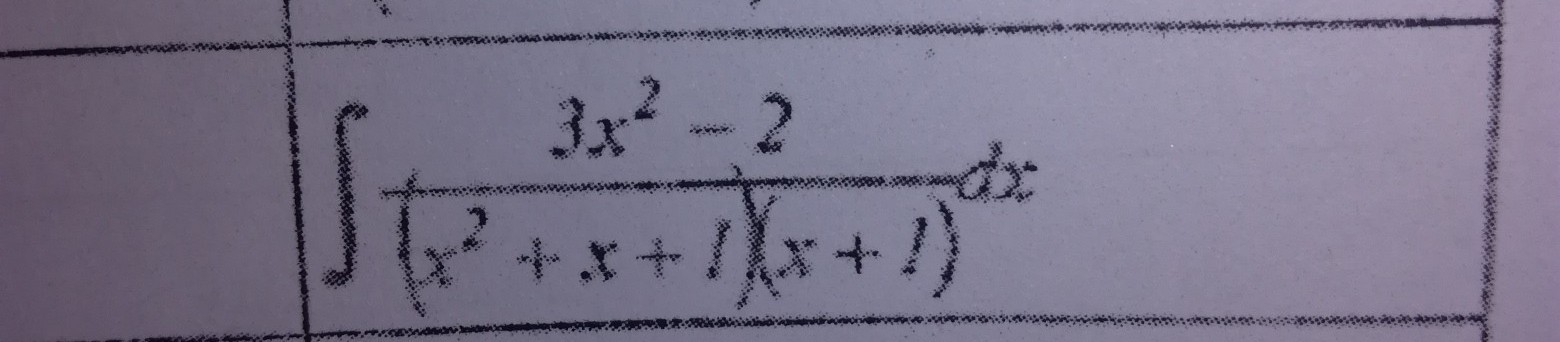 ∫ (3x² − 2) / ((x² + x + 1)(x + 1)) dx